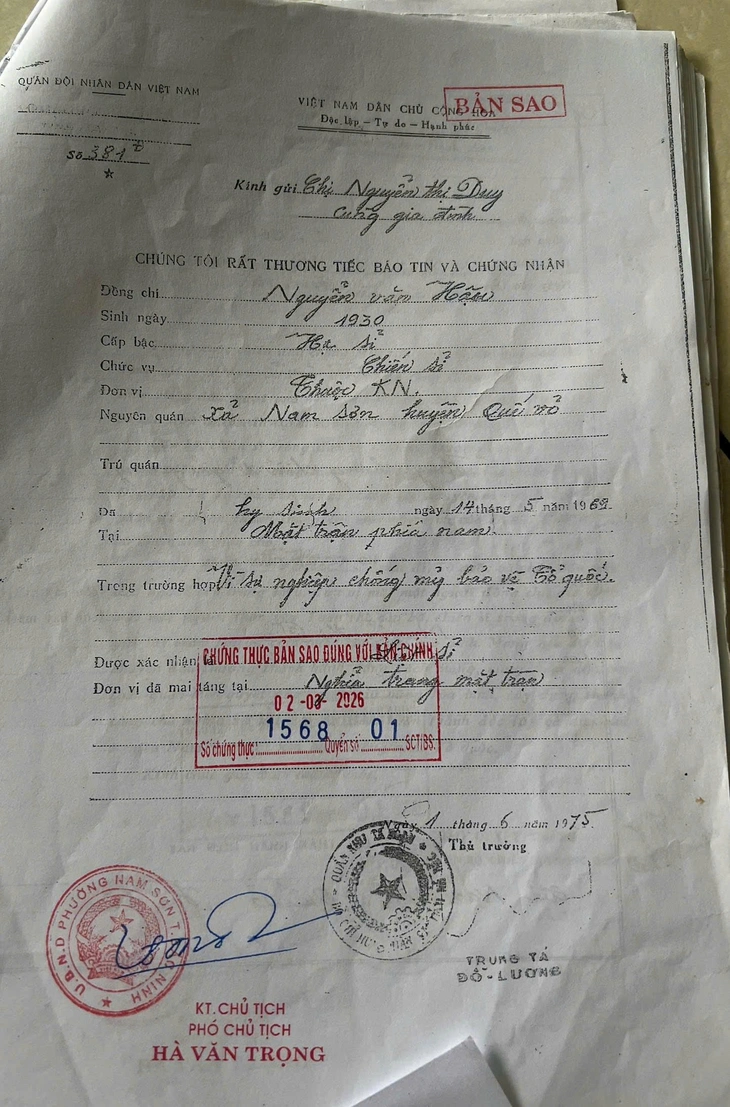 QUÂN ĐỘI NHÂN DÂN VIỆT NAM
Số 381
VIỆT NAM DÂN CHỦ CỘNG HÒA
BẢN SAO
Độc lập – Tự do – Hạnh phúc
Kính gửi Chị Nguyễn thị Duy
Cùng gia đình
CHÚNG TÔI RẤT THƯƠNG TIẾC BÁO TIN VÀ CHỨNG NHẬN
Đồng chí Nguyễn văn Hậu
Sinh ngày 1930
Cấp bậc Hạ sĩ
Chức vụ Chiến sĩ
Đơn vị Thuộc KN.
Nguyên quán xã Nam sơn huyện Quế võ
Trú quán
Đã hy sinh ngày 14 tháng 5 năm 1969
Tại Mặt trận phía nam.
Trong trường hợp Vì sự nghiệp chống mỹ bảo vệ Tổ quốc.
Được xác nhận là sĩ
CHỨNG THỰC BẢN SAO ĐÚNG VỚI BẢN CHÍNH
Đơn vị đã mai táng tại Nghĩa trang mặt trận
02 -03- 2026
1568 01
Số chứng thực: Quyển số: SCT/BS.
Ngày 1 tháng 6 năm 1975
Thủ trưởng
U.B.N.D PHƯỜNG NAM SƠN T. NINH
TRUNG TÁ
ĐỖ-LƯƠNG
KT. CHỦ TỊCH
PHÓ CHỦ TỊCH
HÀ VĂN TRỌNG